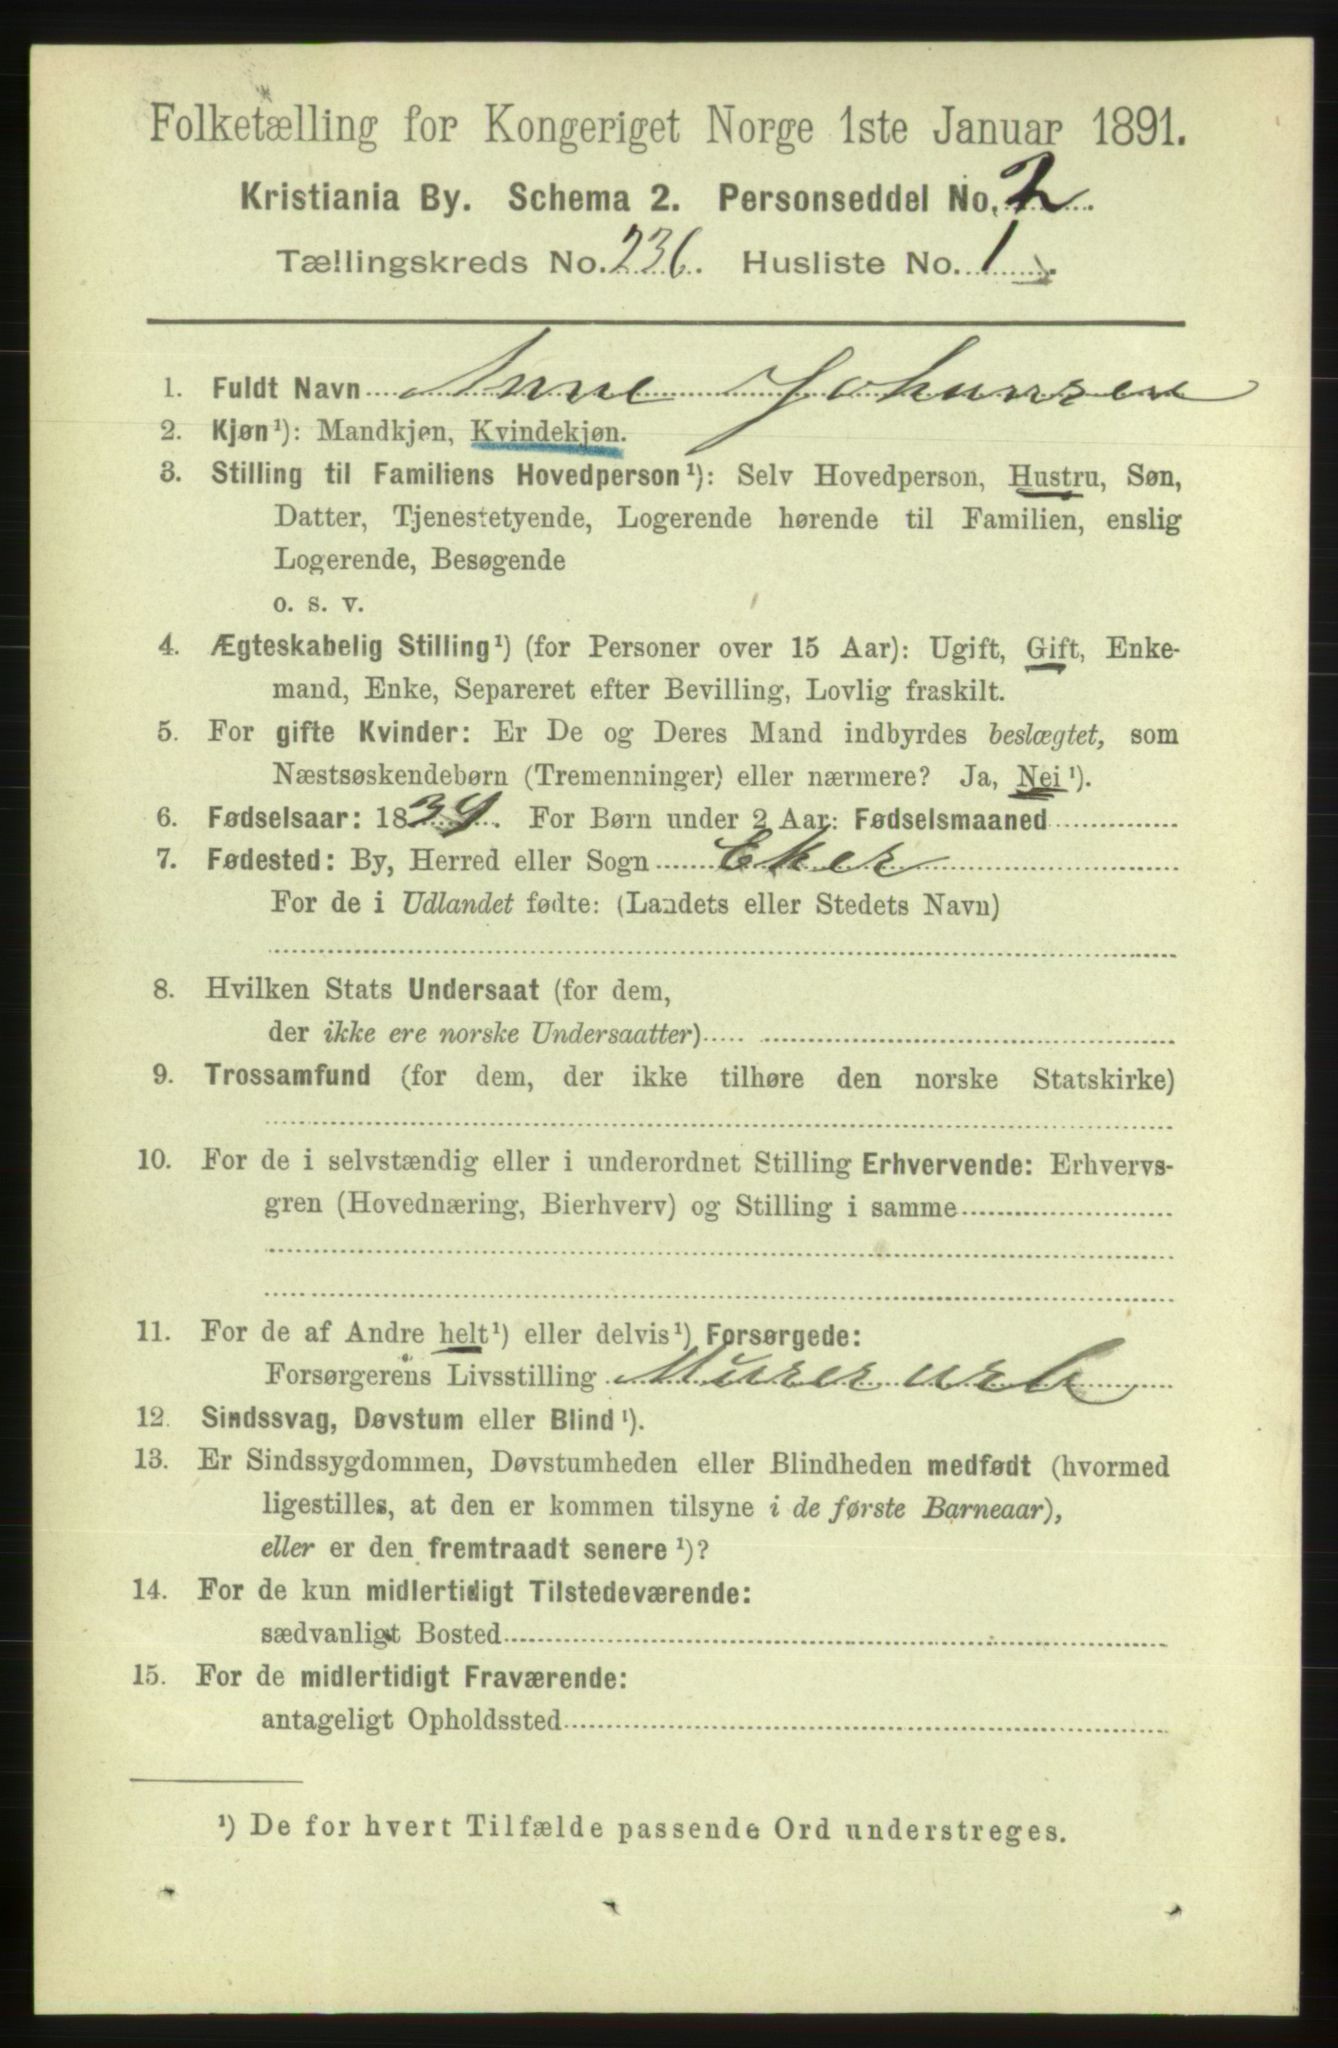 Folketælling for Kongeriget Norge 1ste Januar 1891.
Kristiania By. Schema 2. Personseddel No. 2
Tællingskreds No. 236. Husliste No. 1
1. Fuldt Navn Anne Johansen
2. Kjøn¹): Mandkjøn, Kvindekjøn.
3. Stilling til Familiens Hovedperson¹): Selv Hovedperson, Hustru, Søn,
Datter, Tjenestetyende, Logerende hørende til Familien, enslig
Logerende, Besøgende
o. s. v.
4. Ægteskabelig Stilling¹) (for Personer over 15 Aar): Ugift, Gift, Enke-
mand, Enke, Separeret efter Bevilling, Lovlig fraskilt.
5. For gifte Kvinder: Er De og Deres Mand indbyrdes beslægtet, som
Næstsøskendebørn (Tremenninger) eller nærmere? Ja, Nei¹).
6. Fødselsaar: 1834. For Børn under 2 Aar: Fødselsmaaned
7. Fødested: By, Herred eller Sogn Eker
For de i Udlandet fødte: (Landets eller Stedets Navn)
8. Hvilken Stats Undersaat (for dem,
der ikke ere norske Undersaatter)
9. Trossamfund (for dem, der ikke tilhøre den norske Statskirke)
10. For de i selvstændig eller i underordnet Stilling Erhvervende: Erhvervs-
gren (Hovednæring, Bierhverv) og Stilling i samme
11. For de af Andre helt¹) eller delvis¹) Forsørgede:
Forsørgerens Livsstilling Murerarb
12. Sindssvag, Døvstum eller Blind¹).
13. Er Sindssygdommen, Døvstumheden eller Blindheden medfødt (hvormed
ligestilles, at den er kommen tilsyne i de første Barneaar),
eller er den fremtraadt senere¹)?
14. For de kun midlertidigt Tilstedeværende:
sædvanligt Bosted
15. For de midlertidigt Fraværende:
antageligt Opholdssted
¹) De for hvert Tilfælde passende Ord understreges.